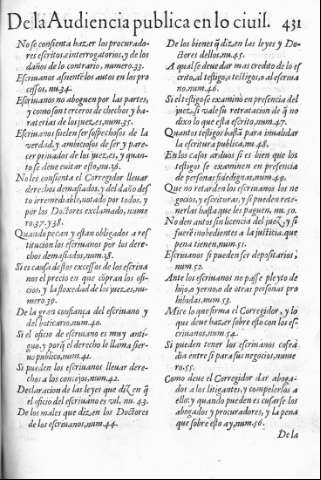 De la Audiencia publica en lo ciuil. 431
No se consienta hazer los procurado-
res escritos a interrogatorios, y de los
daños de lo contrario, numero.33.
Escriuanos assienten los autos en los pro
cessos, nu.34.
Escriuanos no aboguen por las partes,
y como son terceros de clochos y ba-
raterias de los juezes, num.35.
Escriuanos suelen ser sospechosos de la
verdad, y ambiciosos de ser y pare-
cer priuados de los juezes, y quan-
to se deue euitar esto, nu.36.
No les consienta el Corregidor lleuar
derechos demasiados, y del daño des
to irremediable, notado por todos, y
por los Doctores exclamado, nume
ro.37.y38.
Quando pecan y estan obligados a res
titucion los escriuanos por los dere-
chos demasiados, num.38.
Si escusa destos excessos de los escriua
nos el precio en que cõpran los ofi-
cios, y la sloxedad de los juezes, nu-
mero.39.
De la gran confiança del escriuano y
del boticario, num.40.
Si el oficio de escriuano es muy anti-
guo, y porq̃ el derecho le llama sier-
uo publico, num.41.
Si pueden los escriuanos lleuar dere-
chos a los concejos, num.42.
Declaracion de las leyes que dizẽ q̃
el oficio del escriuano es vil, nu. 43.
De los males que dizen los Doctores
de los escriuanos, num.44.
De los bienes q̃ dizẽ an las leyes y Do-
ctores dellos, nu.45.
A qual se deue dar mas credito de lo es
crito, al testigo, o testigos, o al escriua
no, num.46.
Si el testigo se examinò en presencia del
juez, si vale su retratacion de q̃ no
dixo lo que esta escrito, num.47.
Quantos testigos bastã para inualidar
la escritura publica, nu.48.
En los casos arduos si es bien que los
testigos se examinen en presencia
de personas fidedignas, num.49.
Que no retarden los escriuanos los ne
gocios, y escrituras, y si pueden rete-
nerlas hasta que les paguen, nu.50.
No den autos sin licencia del juez, y si
fuerẽ inobedientes a la justicia, que
pena tienen, num.51.
Escriuanos si pueden ser depositarios,
num.52.
Ante los escriuanos no passe pleyto de
hijo, o yerno, o de otras personas pro
hibidas, num.53.
Mire lo que firma el Corregidor, y lo
que deue hazer sobre esto con los es-
criuanos, num.54.
Si pueden tener los escriuanos cofra-
dia entre si para sus negocios, nume
ro.55.
Como deue el Corregidor dar aboga-
dos a los litigantes, y compelerlos a
ello: y quando pueden escusarse los
abogados y procuradores, y la pena
que sobre esto ay, num.56.
De la